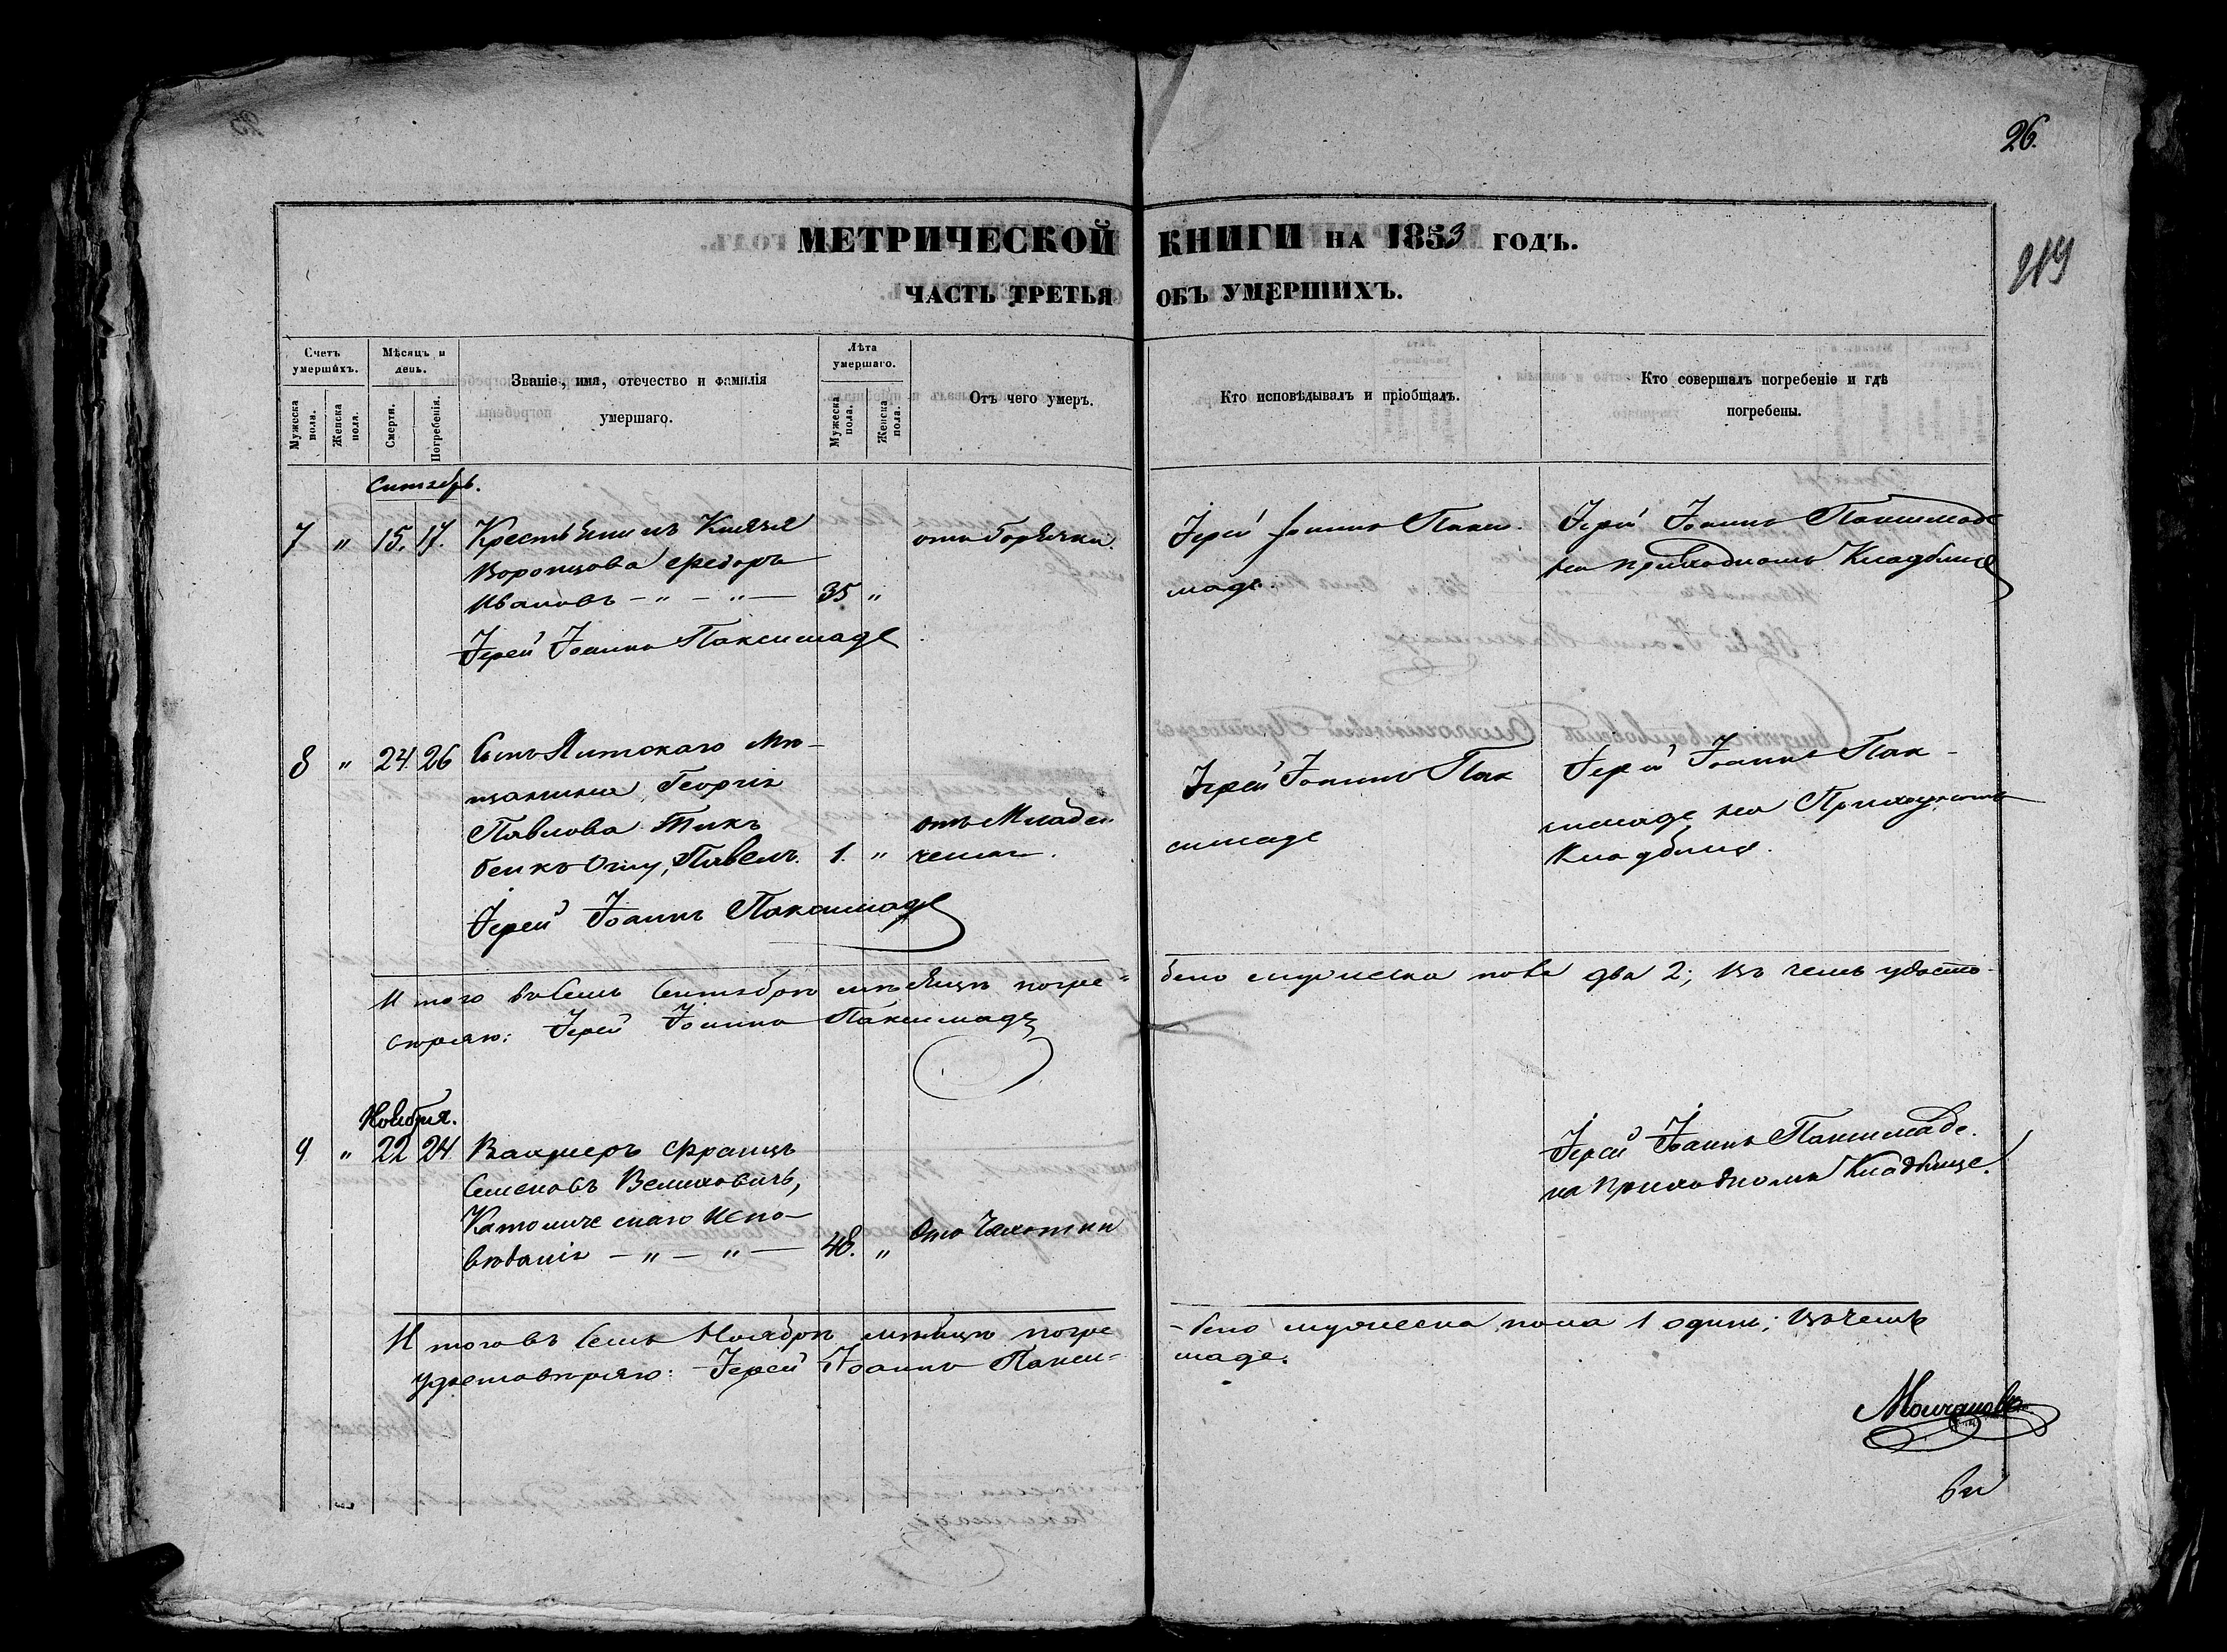 26.
219
МЕТРИЧЕСКОЙ КНИГИ НА 1853 ГОДЪ.
ЧАСТЬ ТРЕТЬЯ ОБЪ УМЕРШИХЪ.
Счетъ умершихъ.
Мужеска пола.
Женска пола.
Мѣсяцъ и день.
Смерти.
Погребенія.
Званіе, имя, отечество и фамилія
умершаго.
Лѣта умершаго.
Мужеска пола.
Женска пола.
Отъ чего умеръ.
Кто исповѣдывалъ и пріобщалъ.
Кто совершалъ погребеніе и гдѣ
погребены.
Сентябрь.
7 " 15. 17. Крестьянинъ Князя
Воронцова Ѳедоръ
Ивановъ — " — " — 35 "
отъ Горячки.
Іерей Іоаннъ Пакси-
маде.
Іерей Іоаннъ Паксимаде
на приходномъ Кладбище
Іерей Іоаннъ Паксимаде
8 " 24. 26 Сынъ Ялтскаго Мѣ-
щанина Георгія
Павлова
Павелъ. 1. "
отъ Младен
ческаг.
Іерей Іоаннъ Пак
симаде
Іерей Іоаннъ Пак-
симаде на Приходномъ
Кладбище.
Іерей Іоаннъ Паксимаде
Итого въ семъ Сентябрѣ мѣсяцѣ погре=
бено мужеска пола два 2; въ чемъ удосто-
вѣряю: Іерей Іоаннъ Паксимаде
Ноября.
9 " 22 24 Вахмеръ Францъ
Семеновъ Велиховичь,
Католическаго испо-
вѣданія — " — " — 48. "
Отъ Чахотки
Іерей Іоаннъ Паксимаде.
на приходномъ Кладбище.
Итого въ семъ Ноябрѣ мѣсяцѣ погре
-бено мужеска пола 1 одинъ; въ чемъ
удостовѣряю: Іерей Іоаннъ Пакси=
маде.